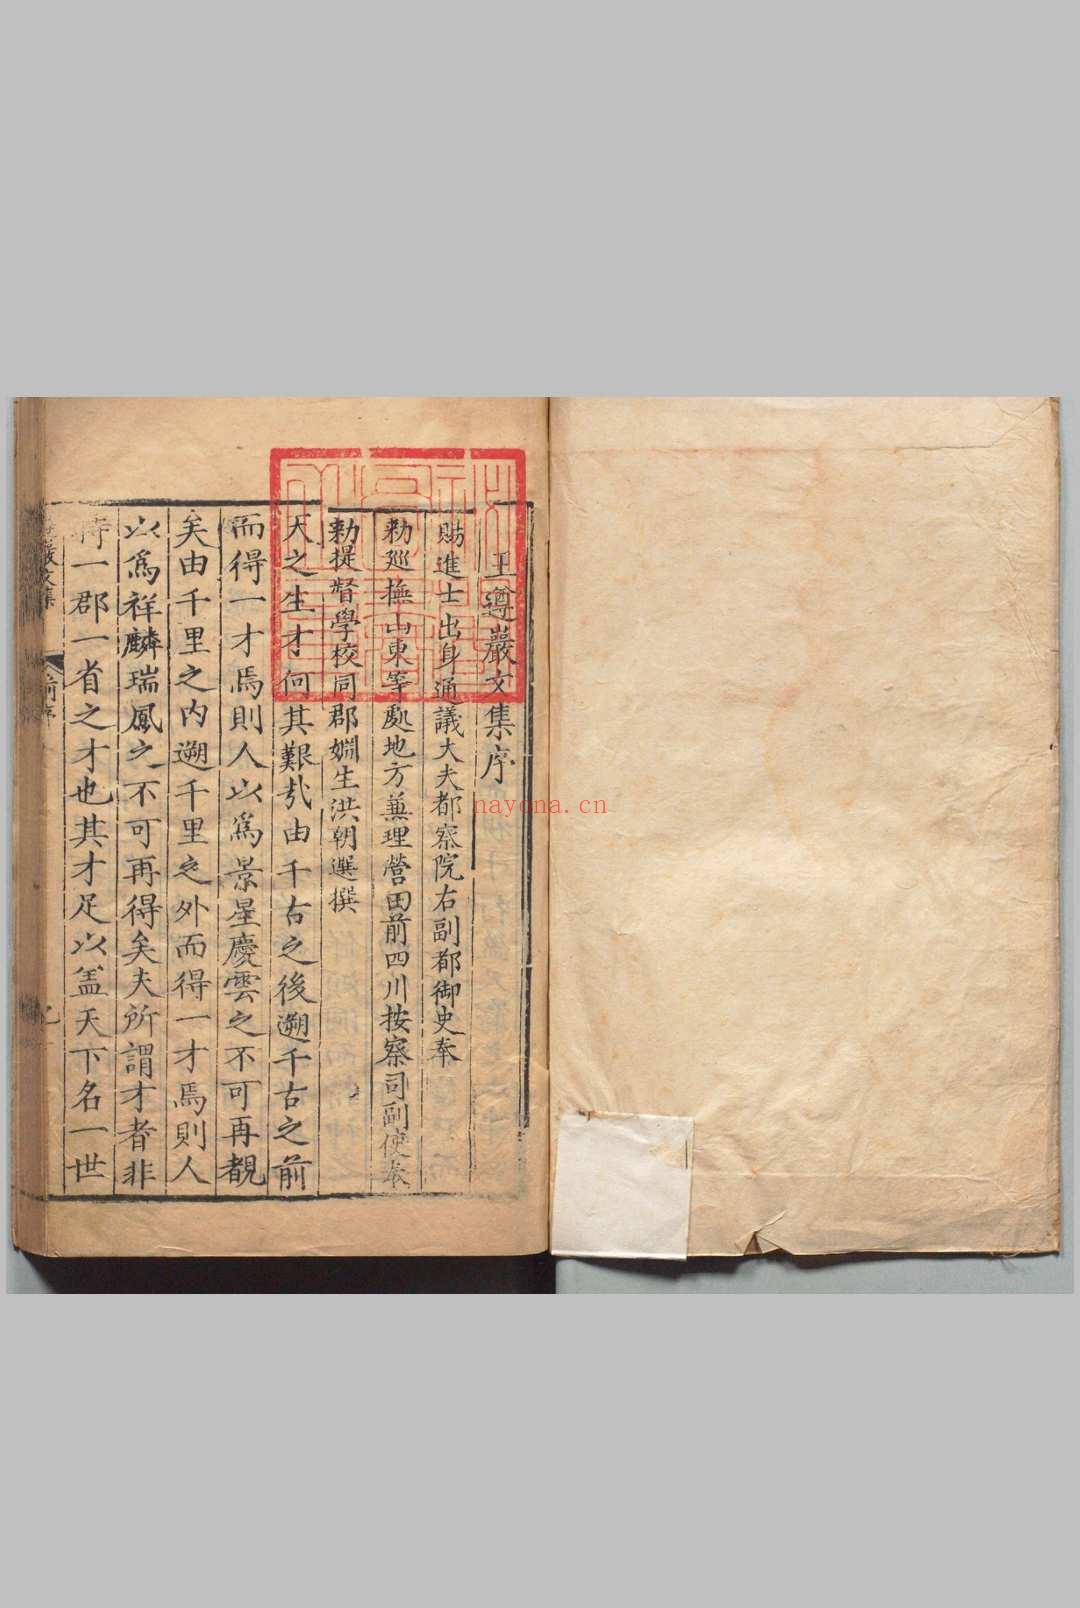 王遵巖文集序
賜進士出身通議大夫都察院右副都御史奉
勑廵撫山東等處地方蒹理營田前四川按察司副使奉
勑提督學校同郡婣生洪朝選撰
天之生才何其艱㢤由千古之後遡千古之前
而得一才焉則人以為景星慶雲之不可再覩
矣由千里之内遡千里之外而得一才焉則人
以為祥麟瑞鳳之不可再得矣夫所謂才者非
特一郡一省之才也其才足以盖天下名一世
巖文集
前序
nayona.cn